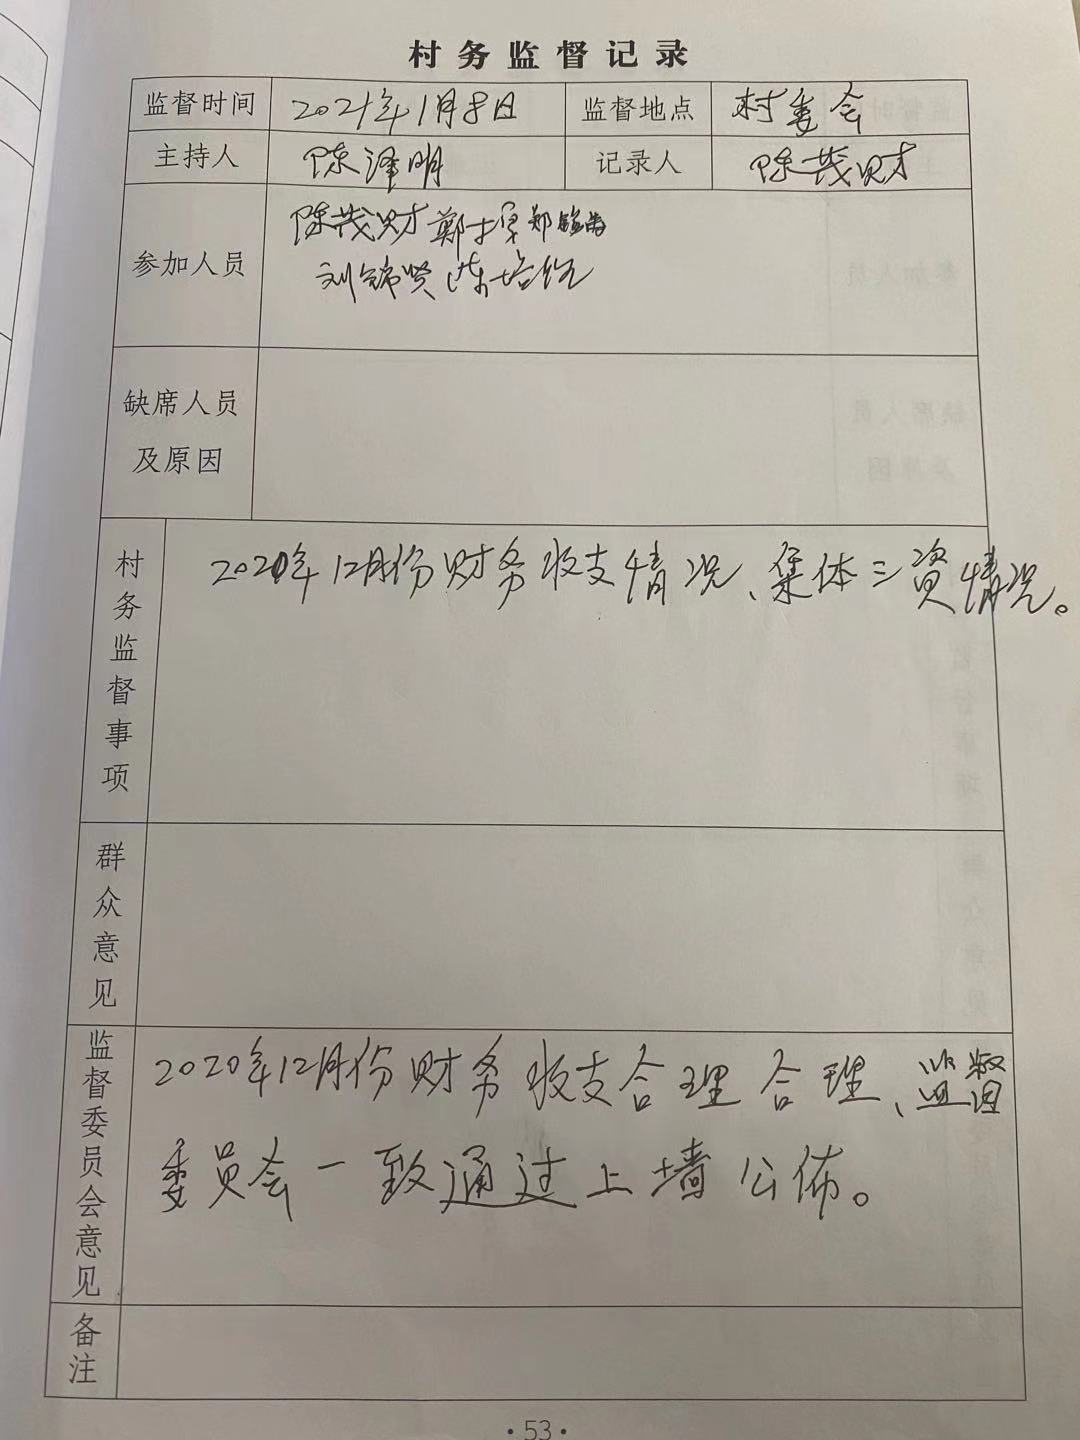 村务监督记录
监督时间 2021年1月8日 监督地点 村委会
主持人 陈泽明 记录人 陈茂财
参加人员 陈茂财 鄭 郑
刘锦贤 陈培
缺席人员
及原因
村务监督事项 2020年12月份财务收支情况、集体三资情况。
群众意见
监督委员会意见 2020年12月份财务收支合理合理、监督
委员会一致通过上墙公佈。
备注
·53·